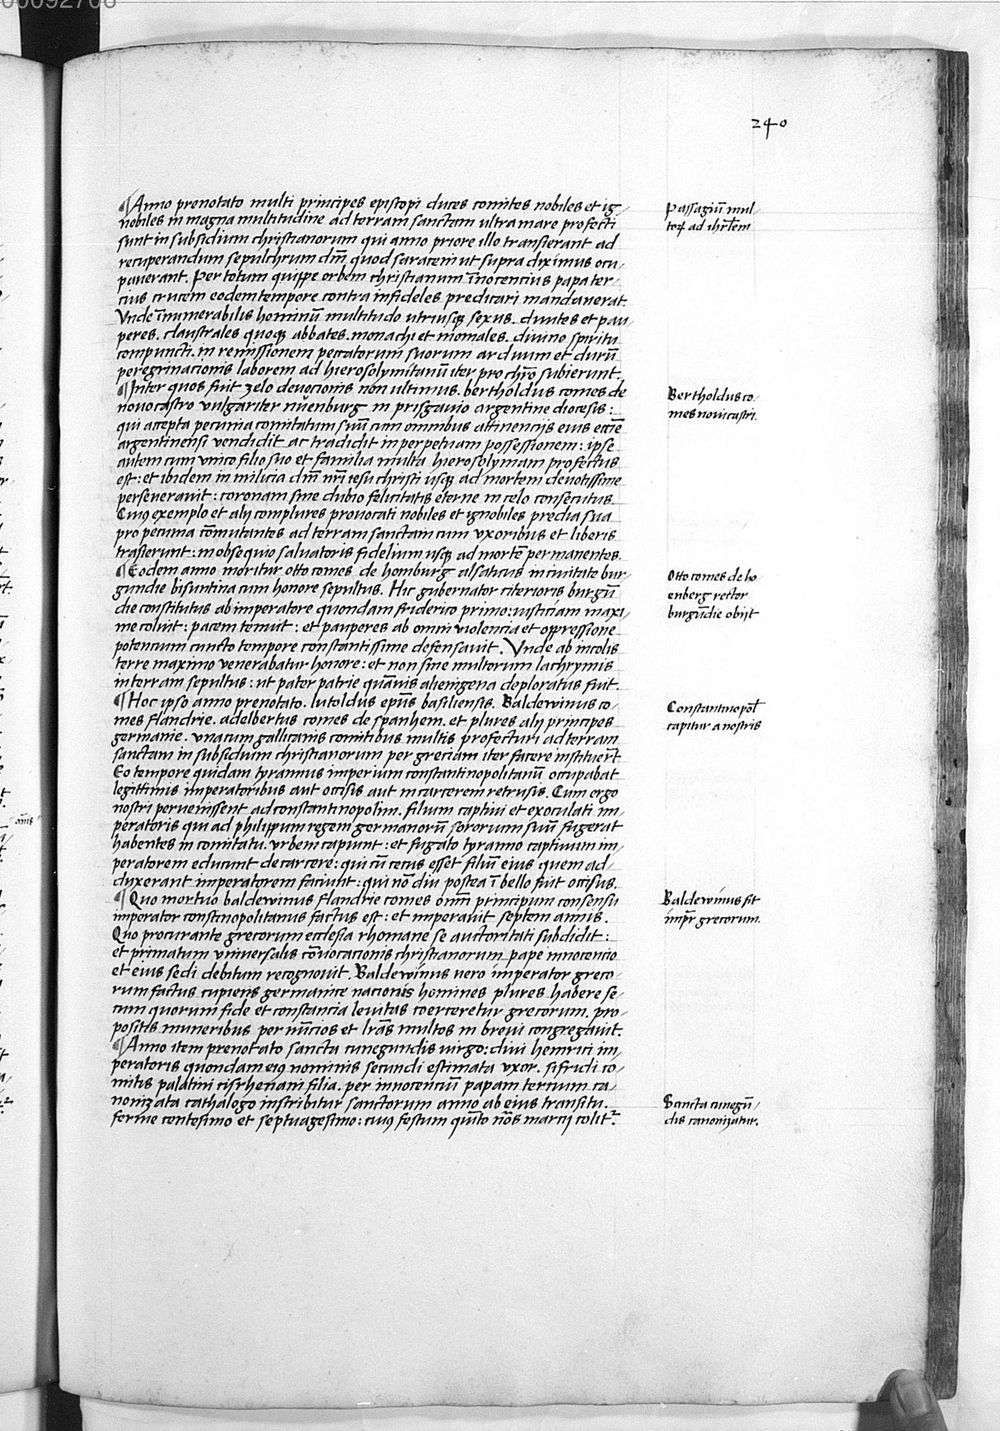 240
¶Anno prenotato multi principes episcopi duces comites nobiles et ig-
nobiles in magna multitudine ad terram sanctam ultra mare profecti
sunt in subsidium christianorum qui anno priore illo transierant ad
recuperandum sepulchrum dm̄ quod saraceni ut supra diximus occu-
pauerant. Per totum quippe orbem christianum īnocencius papa ter-
cius crucem eodem tempore contra infideles predicari mandauerat.
Vnde īnumerabilis hominū multitudo utriusqꝫ sexus. diuites et pau-
peres. claustrales quoqꝫ abbates. monachi et moniales. diuino spiritu
compuncti. in remissionem peccatorum suorum arduum et durū
peregrinacionis laborem ad hierosolymitanū iter pro chrō subierunt.
¶Inter quos fuit zelo deuocionis non ultimus. bertholdus comes de
nouo castro vulgariter nüenburg in prisgauio argentine diocesis:
qui accepta pecunia comitatum suū cum omnibus attinencijs eius eccīe
argentinensi vendidit ac tradidit in perpetuam possessionem: ipse
autem cum vnico filio suo et familia multa hierosolymam profectus
est: et ibidem in milicia dm̄ nr̄i iesu christi usqꝫ ad mortem deuotissime
perseuerauit: coronam sine dubio felicitatis eterne in celo consecutus.
Cuiꝰ exemplo et alij complures prouocati nobiles et ignobiles predia sua
pro pecunia cōmutantes ad terram sanctam cum vxoribus et liberis
trasierunt: in obsequio saluatoris fidelium usqꝫ ad mortē permanentes.
¶Eodem anno moritur otto comes de homburg alsaticus in ciuitate bur-
gundie bisuntina cum honore sepultus. Hic gubernator citerioris burgū-
die constitutus ab imperatore quondam friderico primo: iusticiam maxi-
me coluit: pacem tenuit: et pauperes ab omni violencia et oppressione
potencium cuncto tempore constantissime defensauit. Vnde ab incolis
terre maximo venerabatur honore: et non sine multorum lachrymis
in terram sepultus: ut pater patrie quāuis alienigena deploratus fuit.
¶Hoc ipso anno prenotato. lutoldus ep̄us basiliensis. Baldewinus co-
mes flandrie. adelbertus comes de spanhem. et plures alij principes
germanie. vnacum gallicanis comitibus multis profecturi ad terram
sanctam in subsidium christianorum per greciam iter facere instituer̄t
Eo tempore quidam tyrannus imperium constantinopolitanū occupabat
legittimis imperatoribus aut occisis aut in carcerem retrusis. Cum ergo
nostri peruenissent ad constantinopolim. filium captiui et exoculati im-
peratoris qui ad philippum regem germanorū sororium suū fugerat
habentes in comitatu. vrbem capiunt: et fugato tyranno captiuum im-
peratorem educunt de carcere: qui cū cecus esset filiū eius quem ad-
duxerant imperatorem faciunt: qui nō diu postea ī bello fuit occisus.
¶Quo mortuo baldewinus flandrie comes om̄i principum consensu
imperator constinopolitanus factus est: et imperauit septem annis.
Quo procurante grecorum ecclesia rhomane se auctoritati subdidit:
et primatum vniuersalis cōuocacionis christianorum pape innocencio
et eius sedi debitum recognouit. Baldewinus uero imperator greco-
rum factus cupiens germanice nacionis homines plures habere se-
cum quorum fide et constancia leuitas coerceretur grecorum. pro-
positis muneribus per nūcios et lr̄as multos in breui congregauit.
¶Anno item prenotato sancta cunegundis virgo: diui heinrici im-
peratoris quondam eiꝰ nominis secundi estimata vxor. sifridi co-
mitis palatini cisrhenani filia. per innocenciū papam tercium ca-
nonizata cathalogo inscribitur sanctorum anno ab eius transitu.
ferme centesimo et septuagesimo: cuiꝰ festum quīto nōs marcij colitᷣ.
Passagiū mul-
toꝝ ad ihrl̄em
Bertholdus co-
mes noui castri.
Otto comes de ho-
enberg rector
burgūdie obijt
Constantinopol̄
capitur a nostris
Baldewinus fit
imp̄r grecorum.
Sancta cunegū-
dis canonizatur.